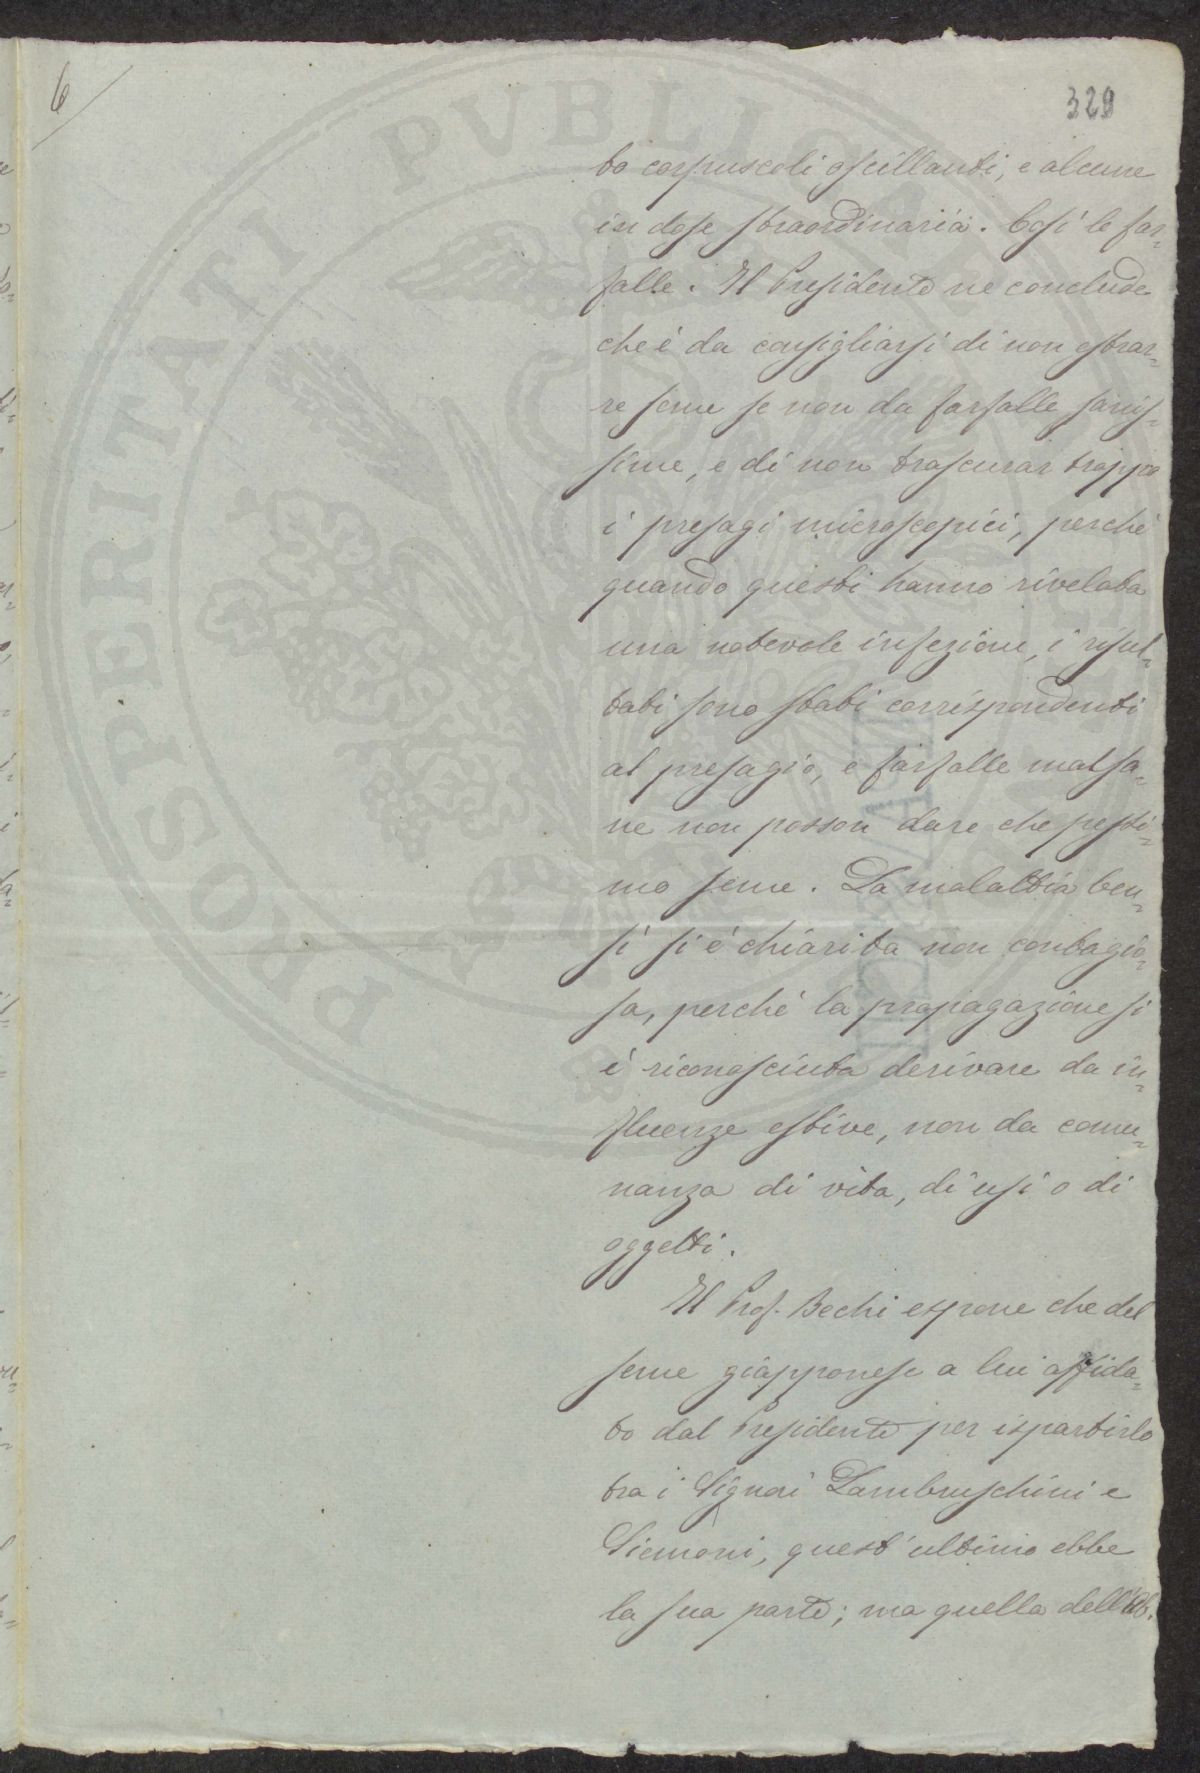 6
329
to corpuscoli oscillanti, e alcune
in dose straordinaria. Così le far-
falle. Il Presidente ne conclude
che è da consigliarsi di non estrar-
re seme se non da farfalle sanis-
sime, e di non trascurar troppo
i presagi microscopici, perchè
quando questi hanno rivelata
una notevole infezione, i risul-
tati sono stati corrispondenti
al presagio, e farfalle malsa-
ne non posson dare che pessi-
mo seme. La malattia ben-
sì si è chiarita non contagio-
sa, perchè la propagazione si
è riconosciuta derivare da in-
fluenze estive, non da comu-
nanza di vita, di usi o di
oggetti.
Il Prof. Bechi espone che del
seme giapponese a lui affida-
to dal Presidente per ispartirlo
tra i Signori Lambruschini e
Siemoni, quest'ultimo ebbe
la sua parte; ma quella dell'Ab.
PROSPERITATI PVBLICAE